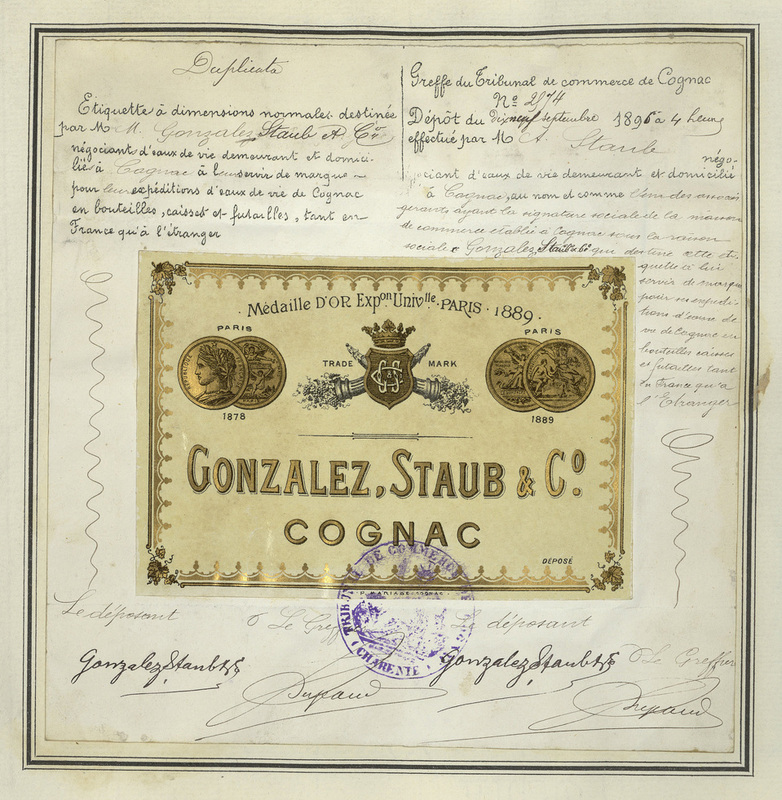 Duplicata
Etiquette à dimensions normales destinée
par M M. Gonzalez Staub & Cie
négociant d'eaux de vie demeurant et domici-
lié à Cognac à leur servir de marque
pour leur expéditions d'eaux de vie de Cognac
en bouteilles, caisses et futailles, tant en
France qu'à l'étranger
Greffe du Tribunal de commerce de Cognac
No 2974
Dépôt du dix neuf septembre 1896 à 4 heures
effectué par M A. Staub
négo-
ciant d'eaux de vie demeurant et domicilié
à Cognac, au nom et comme l'un des associés
gérants ayant la signature sociale de la maison
de commerce établie à Cognac sous la raison
sociale Gonzalez, Staub & Co qui destine cette éti-
quette à lui
servir de marque
pour ses expédi-
tions d'eaux de
vie de Cognac en
bouteilles caisses
et futailles tant
en France qu'à
l'Etranger
Médaille D'OR Expon. Univlle. PARIS · 1889.
PARIS
PARIS
TRADE MARK
1878
1889
GONZALEZ, STAUB & Co.
COGNAC
DÉPOSÉ
TRIBUNAL DE COMMERCE DE
(CHARENTE)
Le déposant
Le Greffier
Le déposant
Le Greffier
Gonzalez Staub & Co
Gonzalez Staub & Co